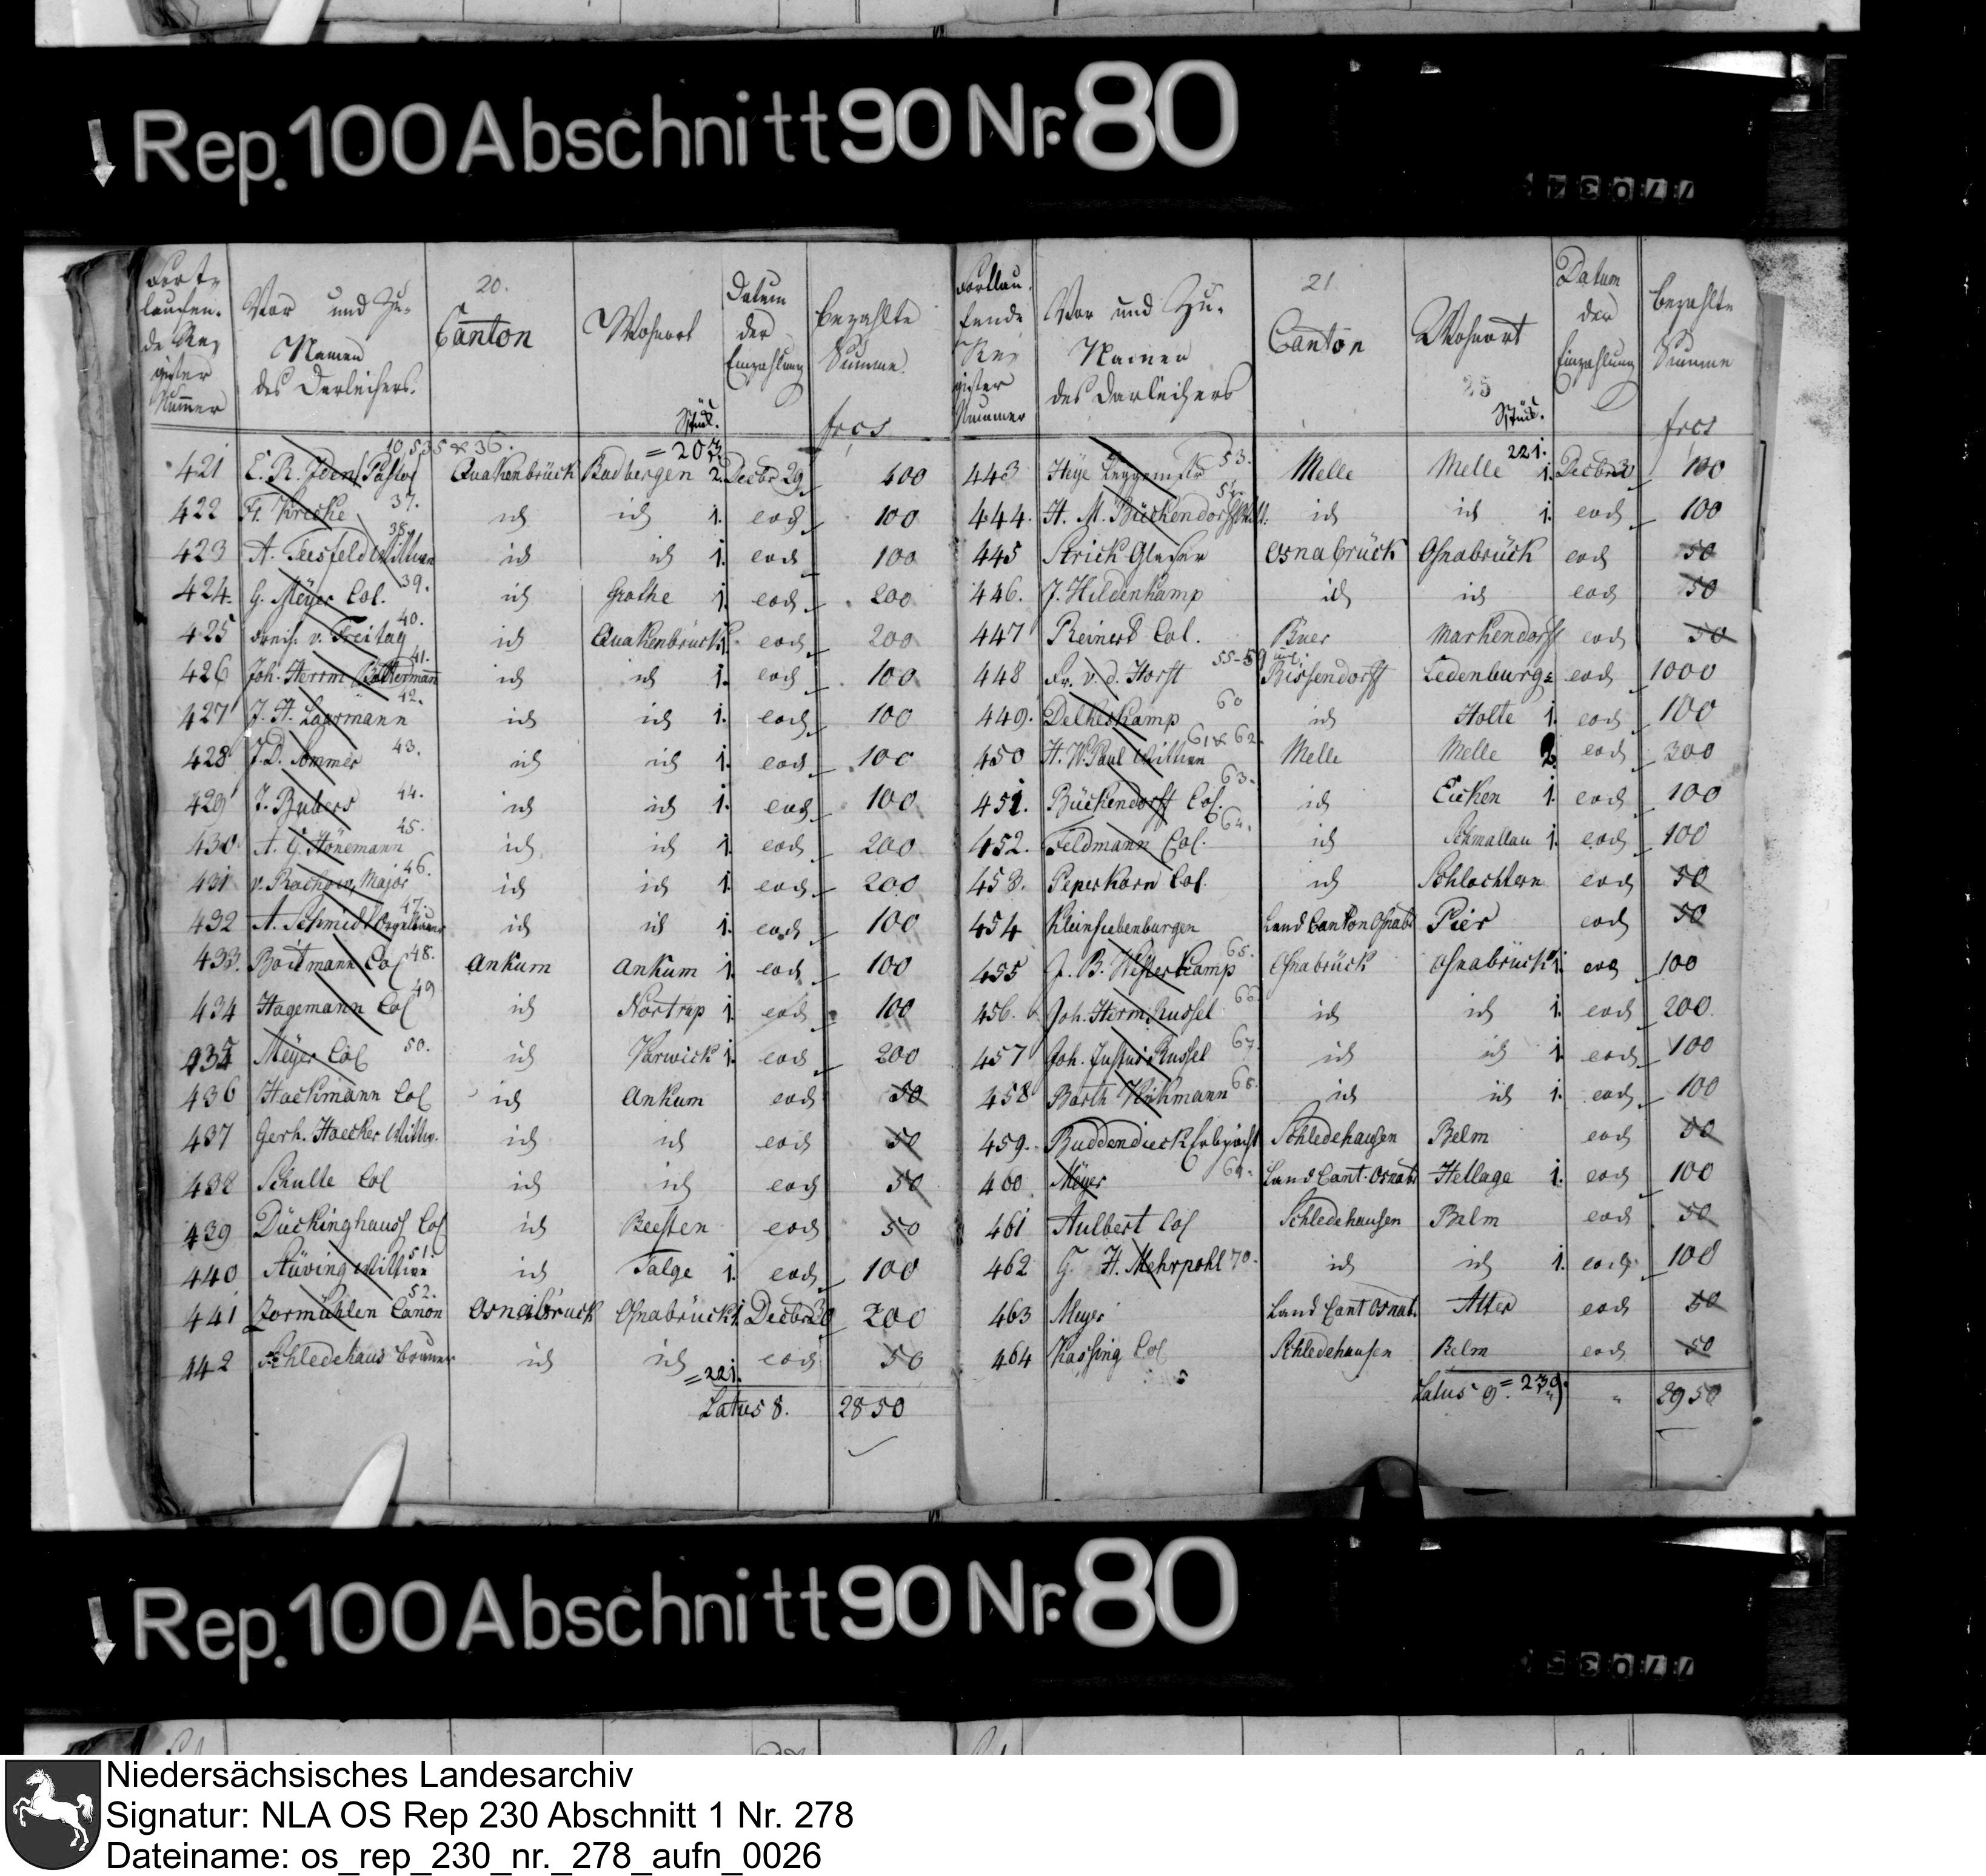 Rep. 100 Abschnitt 90 Nr. 80
20.
Fort-
laufen-
de Re-
gister
Nummer
Vor und Zu-
Namen
des Darleihers.
Canton
Wohnort
Stück.
Datum
der
Einzahlung
bezahlte
Summe.
frcs
10,535 & 36.
= 203
421 E. R. Iden Pastor Quakenbrück Badbergen 2. Decbr 29 400
422 Fr. Kreske 37. id id 1. eod 100
423 A. Teesfeld Wittwe 38. id id 1. eod 100
424. G. Meyer Col. 39. id Grothe 1. eod 200
425 v. Freitag 40. id Quakenbrück 1. eod 200
426 Joh. Herrm 41. id id 1. eod 100
427 J. H. Laarmann 42. id id 1. eod 100
428 J. D. Sommer 43. id id 1. eod 100
429 J. Bubers 44. id id 1. eod 100
430 A. G. Hönemann 45. id id 1. eod 200
431 v. Rachow, Major 46. id id 1. eod 200
432 A. Schmidt Orgelbauer 47. id id 1. eod 100
433. Boitmann Col 48. Ankum Ankum 1. eod 100
434 Hagemann Col 49 id Nortrup 1. eod 100
435 Meyer Col 50. id Varwick 1. eod 200
436 Hackmann Col id Ankum eod 50
437 Gerh. Haecker Wittw. id id eod 50
438 Schulte Col id id eod 50
439 Dückinghaus Col id Beesten eod 50
440 Stüving Wittwe 51. id Talge 1. eod 100
441 Zormühlen Canon 52. Osnabrück Osnabrück 1. Decbr 30 200
442 Schledehaus id id eod 50
= 221.
Latus 8. 2850
21.
Fortlau-
fende
Re-
gister
Nummer
Vor und Zu-
Namen
des Darleihers
Canton
Wohnort
25
Stück.
Datum
der
Einzahlung
bezahlte
Summe
frcs
221.
443 Heye 53. Melle Melle 1. Decbr 30 100
444. H. M. Bückendorf 54. id id 1. eod 100
445 Strick Glaser Osnabrück Osnabrück eod 50
446. J. Hildenkamp id id eod 50
447 Reinert Col. Buer Markendorff eod 50
448 Fr. v. d. Horst 55-59 Bissendorff Ledenburg 5 eod 1000
449. Delkeskamp 60 id Holte 1. eod 100
450 H. W. Paul Wittwe 61 & 62. Melle Melle 2. eod 300
451. Bückendorff Col. 63. id Eicken 1. eod 100
452. Feldmann Col. 64. id Schmallau 1. eod 100
453. Peperkorn Col. id Schlochtern eod 50
454 Kleinsiebenburgen Land Canton Osnab. Pier eod 50
455 J. B. Westerkamp 65. Osnabrück Osnabrück 1. eod 100
456. Joh. Herm. Russel 66. id id 1. eod 200.
457 Joh. Justus Russel 67. id id 1. eod 100
458 Barth 68. id id 1. eod 100
459. Buddendieck Erbpächt Schledehausen Belm eod 50
460 Meyer 69. Land Cant. Osnab. Hellage 1. eod 100
461 Aulbert Col Schledehausen Belm eod 50
462 G. H. Mehrpohl 70. id id 1. eod 100
463 Meyer Land Cant Osnab. Atter eod 50
464 Kassing Col Schledehausen Belm eod 50
Latus 9. = 239. " 2950
Rep. 100 Abschnitt 90 Nr. 80
Niedersächsisches Landesarchiv
Signatur: NLA OS Rep 230 Abschnitt 1 Nr. 278
Dateiname: os_rep_230_nr._278_aufn_0026